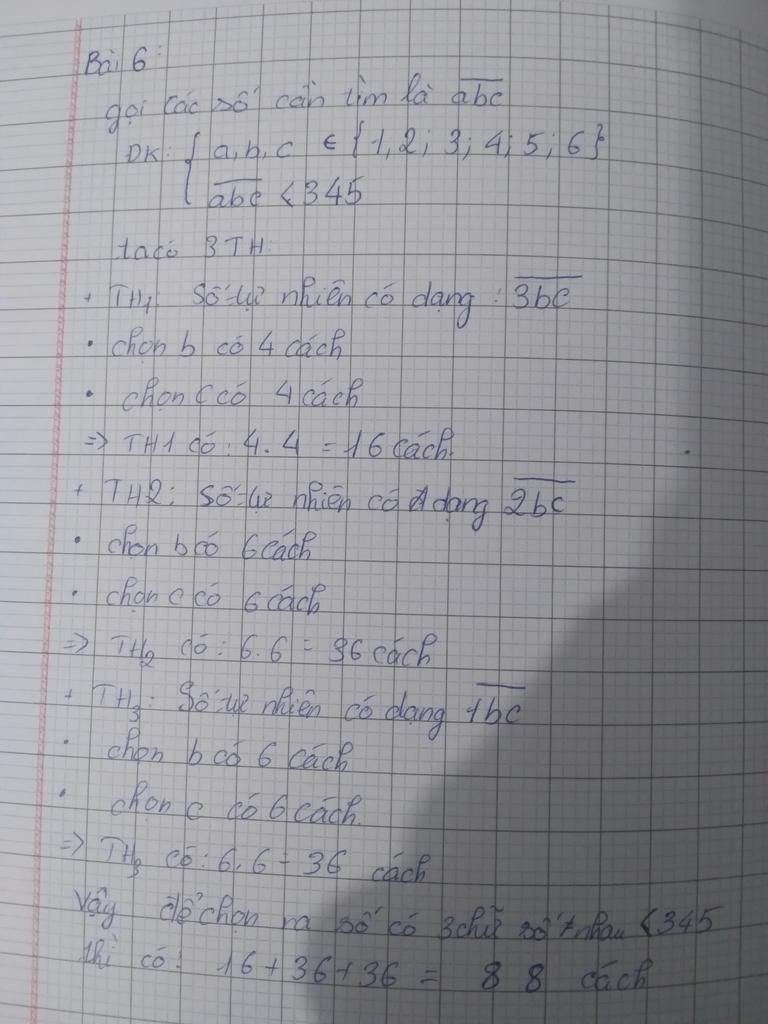 Bài 6:
gọi các số cần tìm là abc
ĐK: { a,b,c ∈ {1,2; 3; 4; 5; 6}
abc < 345
ta có 3 TH:
+ TH1: Số tự nhiên có dạng : 3bc
• chọn b có 4 cách
• chọn c có 4 cách
=> TH1 có: 4.4 = 16 cách
+ TH2: Số tự nhiên có dạng 2bc
• chọn b có 6 cách
• chọn c có 6 cách
=> TH2 có: 6.6 = 36 cách
+ TH3: Số tự nhiên có dạng 1bc
• chọn b có 6 cách
• chọn c có 6 cách.
=> TH3 có: 6.6 = 36 cách
Vậy để chọn ra số có 3 chữ số ≠ nhau < 345
thì có: 16 + 36 + 36 = 88 cách